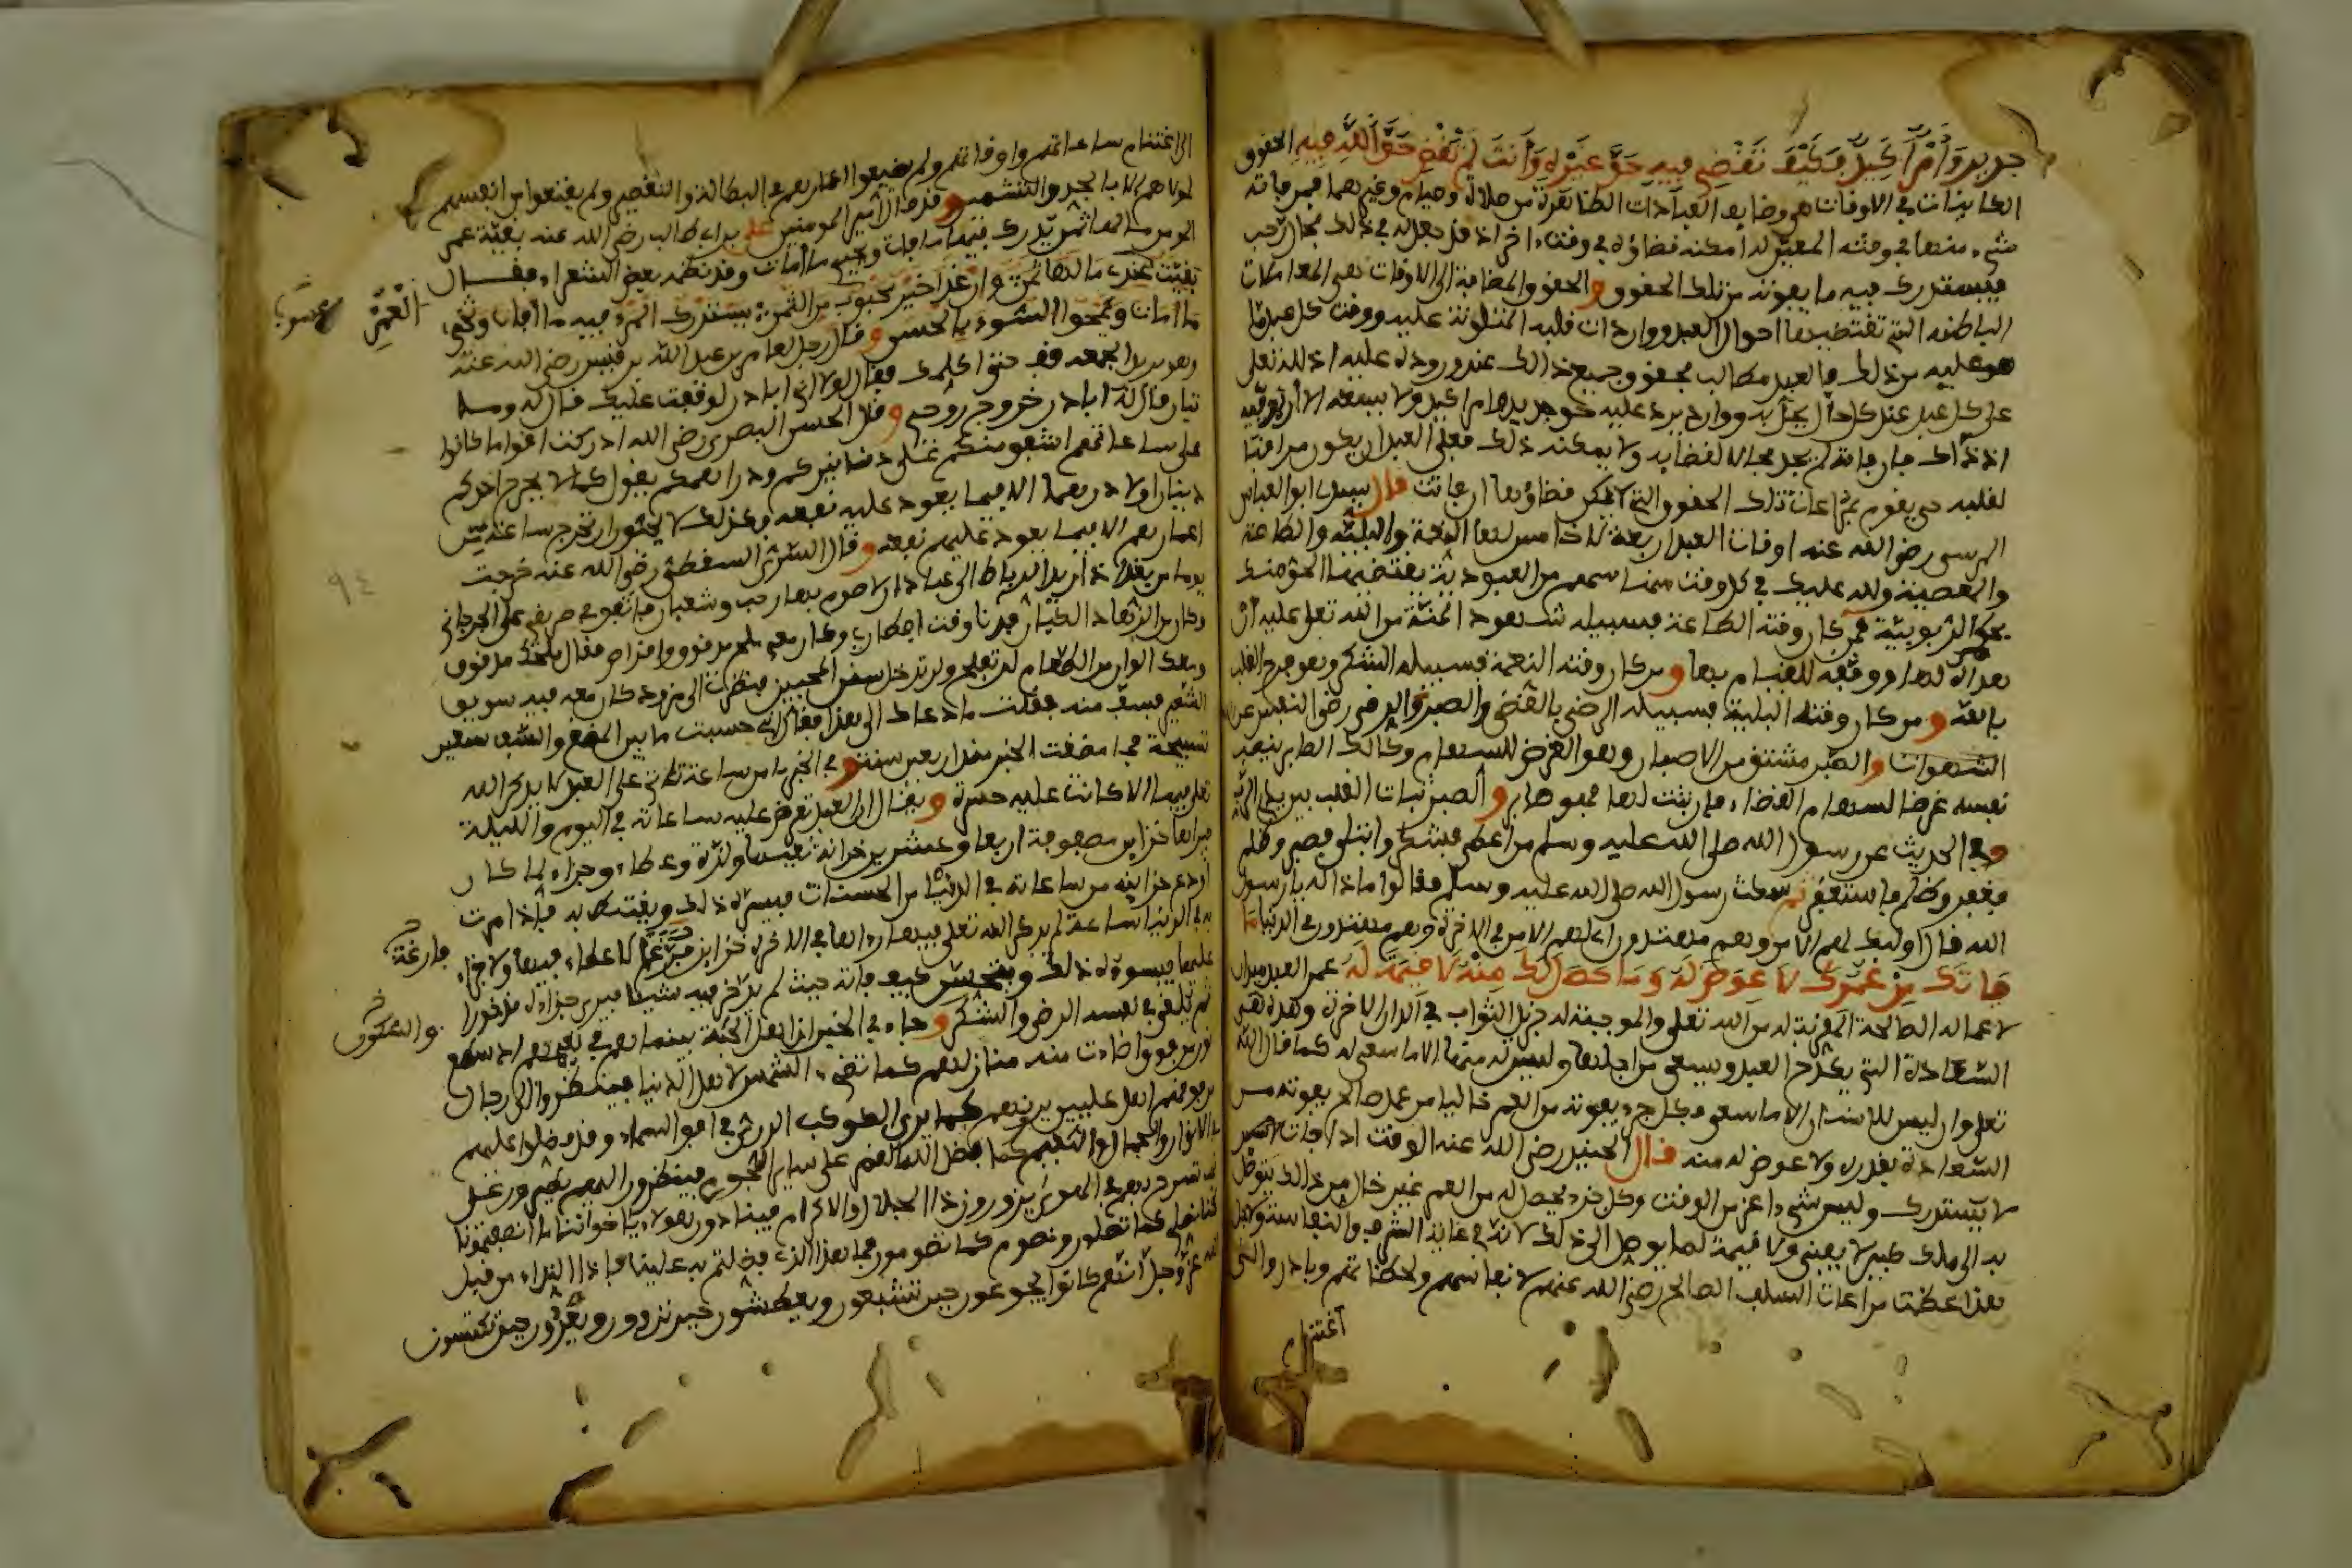 جديد وأمر أكيد فكيف تقضي فيه حق غيره وأنت لم تقض حق الله فيه الحقوق
الكاينات في الاوقات هي وضايف العبادات الظاهرة من صلاة وصيام وغيرهما فمن فاته
شيء منها في وقته المعين له امكنه قضاؤه في وقت اخر اذ قد جعل له في ذلك مجال رحب
فيستدرك فيه ما يفوته من تلك الحقوق والحقوق المضافة الى الاوقات هي المعاملات
الباطنة التي تقتضيها احوال العبد وواردات قلبه المتلونة عليه ووقت كل عبد ما
هو عليه من ذلك فالعبد مطالب بحقوق جميع ذلك عند وروده عليه اذ لله تعلى
على كل عبد عند كل حال يحل به ووارد يرد عليه حق جديد وامر اكيد ولا يسعه الا ان يوفيه
اذ ذاك فان فاته لم يجد مجالا لقضايه ولا يمكنه ذلك فعلى العبد ان يكون مراقبا
لقلبه حتى يقوم بمراعات تلك الحقوق التي لا يمكن قضاؤها ان فاتت قال سيدي ابو العباس
المرسي رضي الله عنه اوقات العبد اربعة لا خامس لها النعمة والبلية والطاعة
والمعصية ولله عليك في كل وقت منها سهم من العبودية يقتضيها الحق منك
بحكم الربوبية فمن كان وقته الطاعة فسبيله شهود المنة من الله تعلى عليه ان
هداه لها ووفقه للقيام بها ومن كان وقته النعمة فسبيله الشكر وهو فرح القلب
بالله ومن كان وقته البلية فسبيله الرضى بالقضى والصبر والرضى رضى النفس عن
الشهوات والصبر مشتق من الاصبار وهو الغرض للسهام وكذلك الصابر ينصب
نفسه غرضا لسهام القضاء فان ثبت لها فهو صابر والصبر ثبات القلب بين يدي الرب
وفي الحديث عن رسول الله صلى الله عليه وسلم من اعطي فشكر وابتلي فصبر وظلم
فغفر وظلم فاستغفر ثم سكت رسول الله صلى الله عليه وسلم فقالوا ماذا له يا رسول
الله قال اوليك لهم الامن وهم مهتدون اي لهم الامن في الاخرة وهم مهتدون في الدنيا ما
فاتك من عمرك لا عوض له وما حصل لك منه لا قيمة له عمر العبد ميدان
لاعماله الصالحة المقربة له من الله تعلى والموجبة له جزيل الثواب في الدار الاخرة وهذه هي
السعادة التي يكدح العبد ويسعى من اجلها وليس له منها الا ما سعى له كما قال الله
تعلى وان ليس للانسان الا ما سعى فكل جزء يفوته من العمر خاليا من عمل صالح يفوته من
السعادة بقدره ولا عوض له منه قال الجنيد رضي الله عنه الوقت اذا فات
لا يستدرك وليس شيء اعز من الوقت وكل جزء يحصل له من العمر غير خال من ذلك يتوصل
به الى ملك كبير لا يفنى ولا قيمة لما يوصل الى ذلك لانه في غاية الشرف والنفاسة ولاجل
هذا عظمت مراعات السلف الصالح رضي الله عنهم لانفاسهم ولحظاتهم وبادروا الى
اغتنام
الى اغتنام ساعاتهم واوقاتهم ولم يضيعوا اعمارهم في البطالة والتقصير ولم يقنعوا من انفسهم
لمولاهم الا بالجد والتشمير وقد قال امير المومنين علي بن ابي طالب رضي الله عنه بقية عمر
المومن ما لها ثمن يدرك فيها ما فات ويحيي ما امات وقد نظمه بعض الشعراء فقال
بقيت عندي ما لها ثمن وان غدا خير محبوب من الثمن يستدرك المرء فيه ما افات ويحيي
العمر
ما امات ويمحوا السوء بالحسن وقال رجل لعامر بن عبد الله بن قيس رضي الله عنه
قف حتى اكلمك فقال لولا اني ابادر لوقفت عليك قال له وما
تبادر قال ابادر خروج روحي وقال الحسن البصري رضي الله ادركت اقواما كانوا
على ساعاتهم اشفق منكم على دنانيركم ودراهمكم يقول كما لا يخرج احدكم
دينارا ولا درهما الا فيما يعود عليه نفعه فكذلك لا يحبون ان تخرج ساعة من
اعمارهم الا فيما يعود عليهم نفعه وقال السري السقطي رضي الله عنه خرجت
يوما من بغداد اريد الرباط الى عبادان لاصوم بها رجب وشعبان فاتفق في طريقي علي الجرجاني
وكان من الزهاد الكبار فدنا وقت افطاري وكان معي ملح مدقوق واقراص فقال ملحك مدقوق
ومعك الوان من الطعام لن تفلح ولن تدخل سفر المحبين فنظرت الى مزود كان معه فيه سويق
الشعير فسف منه فقلت ما دعاك الى هذا فقال اني حسبت ما بين المضغ والسف سبعين
تسبيحة فما مضغت الخبز منذ اربعين سنة وفي الخبر ما من ساعة تاتي على العبد لا يذكر الله
تعلى فيها الا كانت عليه حسرة ويقال ان العبد تعرض عليه ساعاته في اليوم والليلة
فيراها خزاين مصفوفة اربعا وعشرين خزانة نعيما ولذة وعطاء وجزاء لما كان
اودع خزاينه من ساعاته في الدنيا من الحسنات فيسره ذلك ويغتبط به فاذا مرت
به في الدنيا ساعة لم يذكر الله تعلى فيها راها في الاخرة خزاين فرغا لا عطاء فيها ولا جزاء
فارغة
عليها فيسوءه ذلك ويتحسر كيف فاته حيث لم يدخر فيه شيئا فيرى جزاءه مدخورا
ثم يلقى في نفسه الرضى والشكر وجاء في الخبر ان اهل الجنة بينما هم في نعيمهم اذ سطع
والسكون
نور من فوق اضاءت منه منازلهم كما تضيء الشمس لاهل الدنيا فينظروا الى رجال
من فوقهم اهل عليين يرونهم كما يرى الكوكب الدري في افق السماء وقد فضلوا عليهم
في الانوار والجمال والنعيم كما فضل القمر على ساير النجوم فينظرون اليهم يطيرون على
نجب تسرح بهم في الهوى يزورون ذا الجلال والاكرام فينادون هولاء يا اخواننا ما انصفتمونا
كنا نصلي كما تصلون ونصوم كما تصومون فما هذا الذي فضلتم به علينا فاذا النداء من قبل
الله عز وجل انهم كانوا يجوعون حين تشبعون ويعطشون حين تروون ويعرون حين تكتسون
٩٤